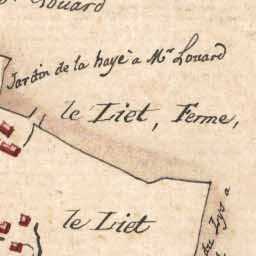 Louard
Jardin de la haye à Mr Louard
le Liet, Ferme,
le Liet
du Lys a